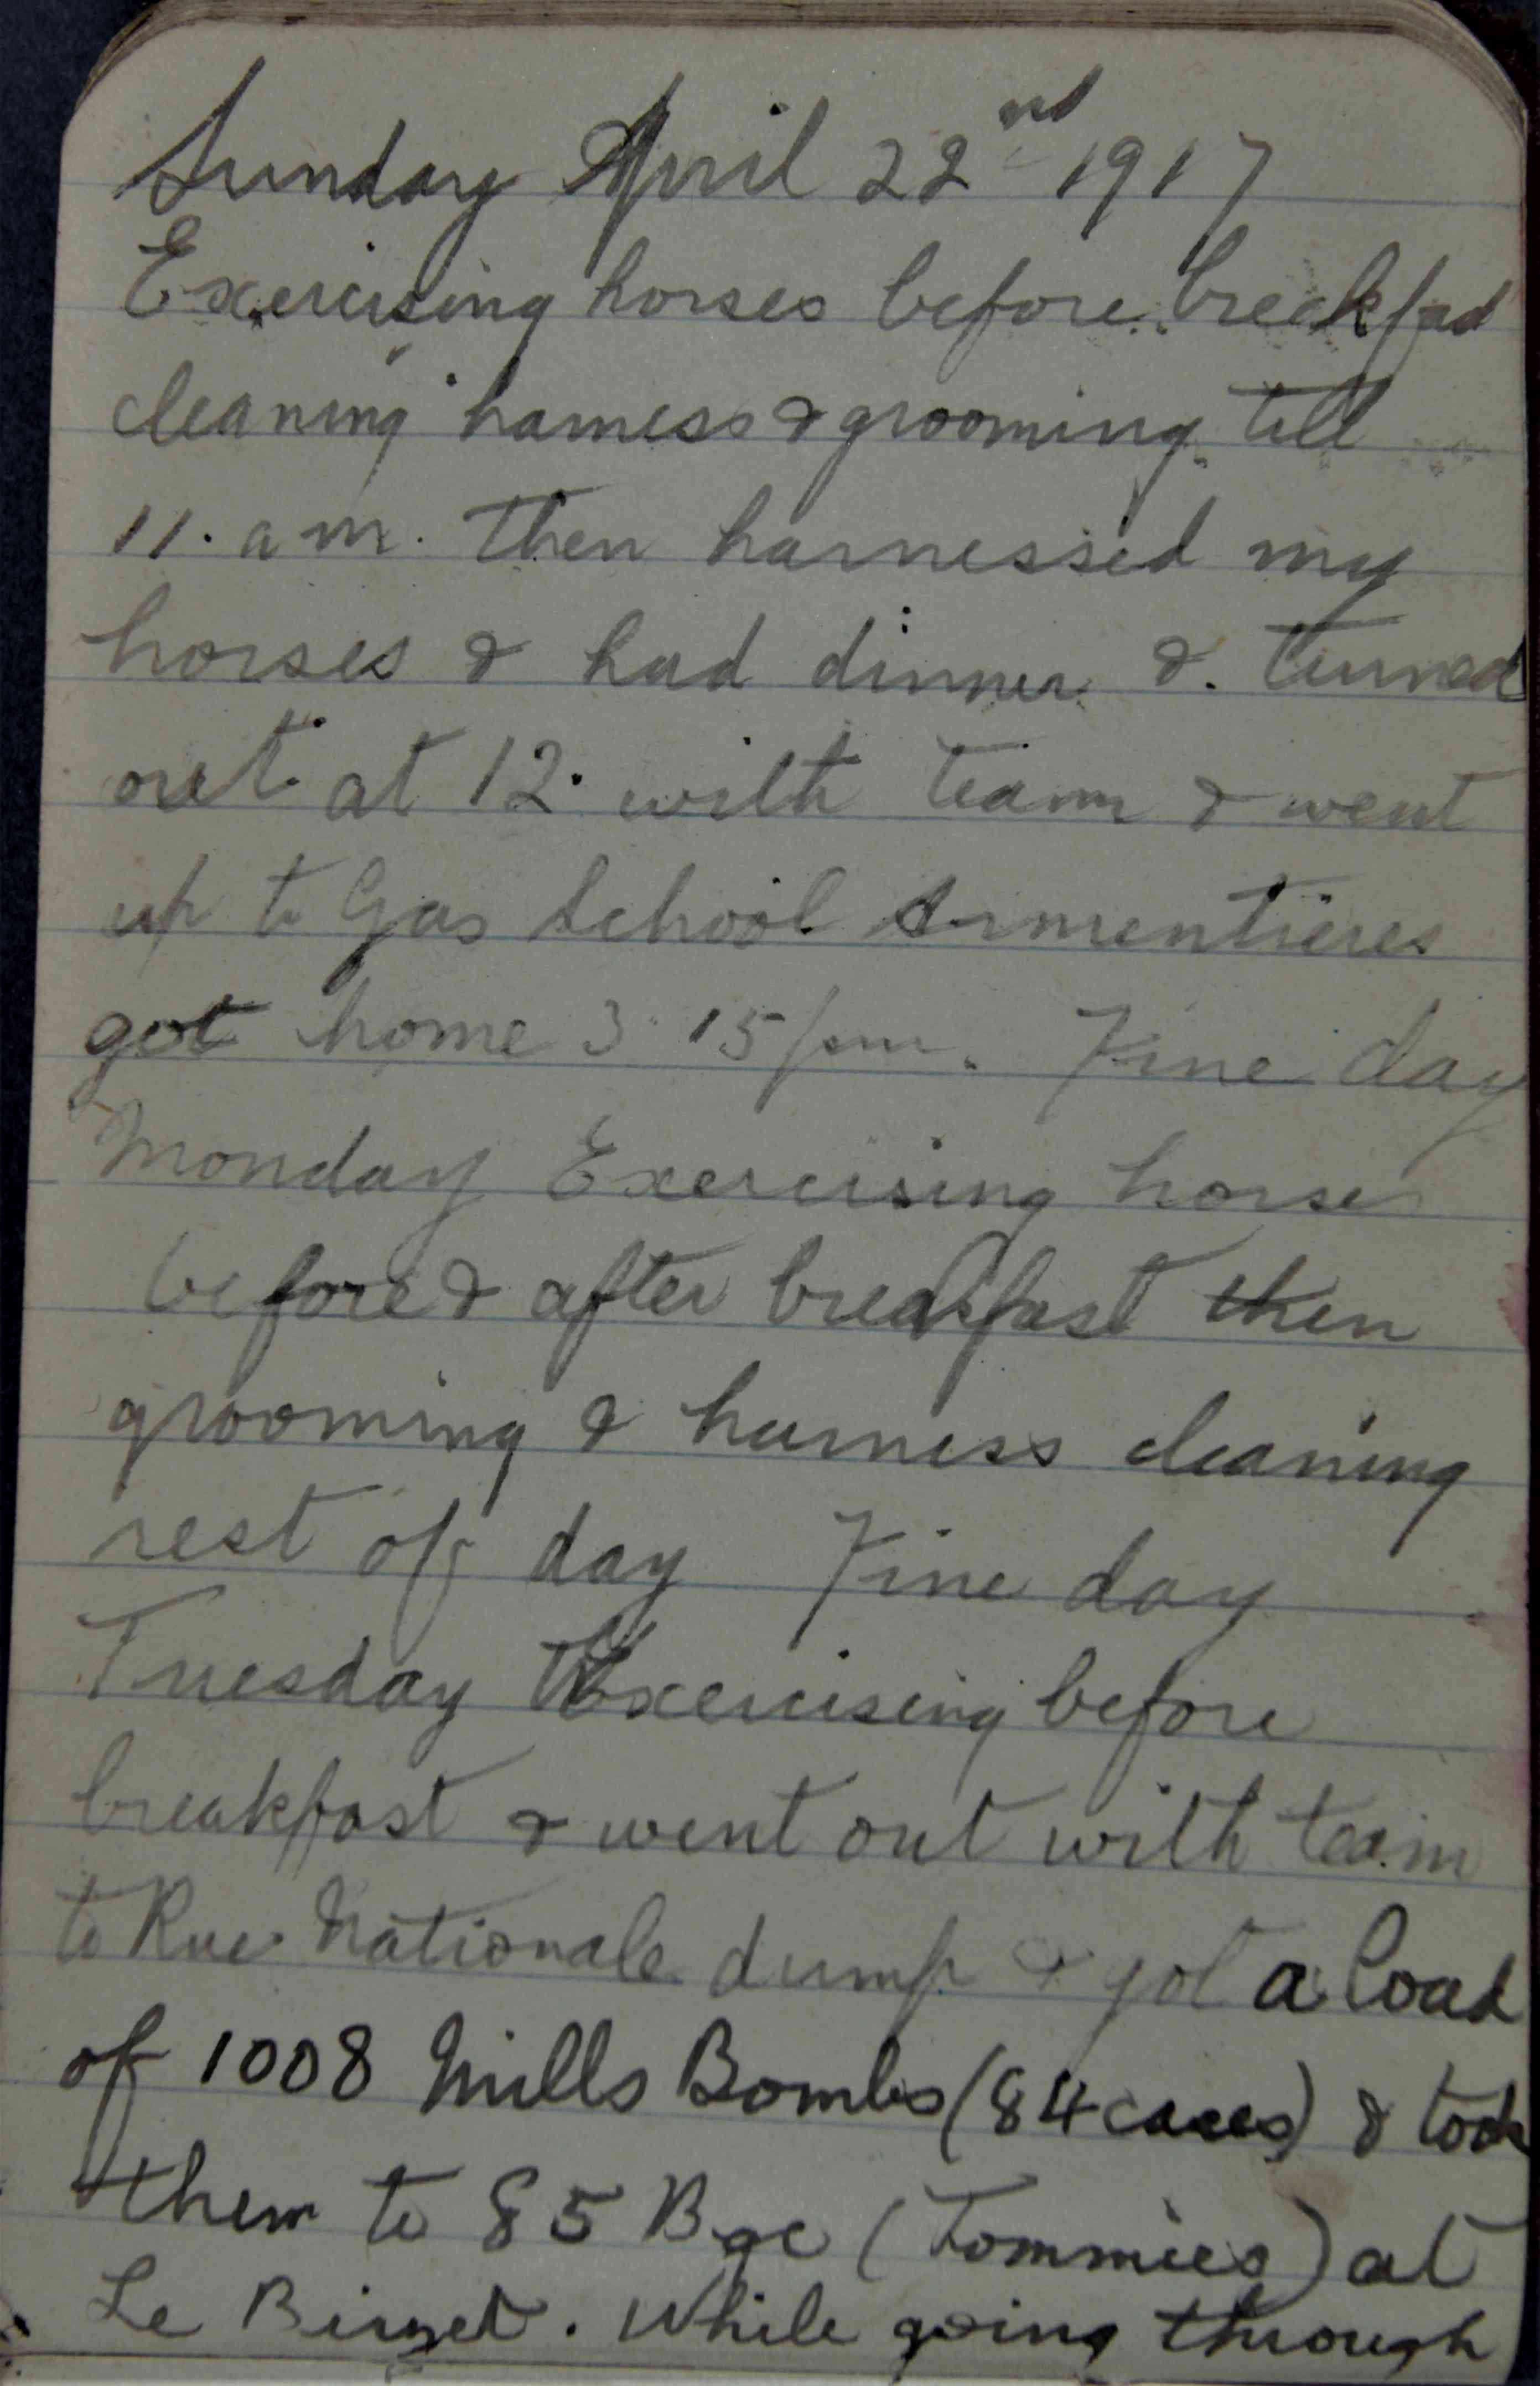 Sunday April 22nd 1917
Exercising horses before breakfast
cleaning harness & grooming till
11. am. Then harnessed my
horses & had dinner &. turned
out at 12. with team & went
up to Gas School Armentieres
got home 3.15 pm. Fine day
Monday Exercising horses
before & after breakfast then
grooming & harness cleaning
rest of day Fine day
Tuesday Exercising before
breakfast & went out with team
to Rue Nationale dump & got a load
of 1008 Mills Bombs (84 cases) & took
them to 85 Bge (Tommies) at
Le Bizet. While going through